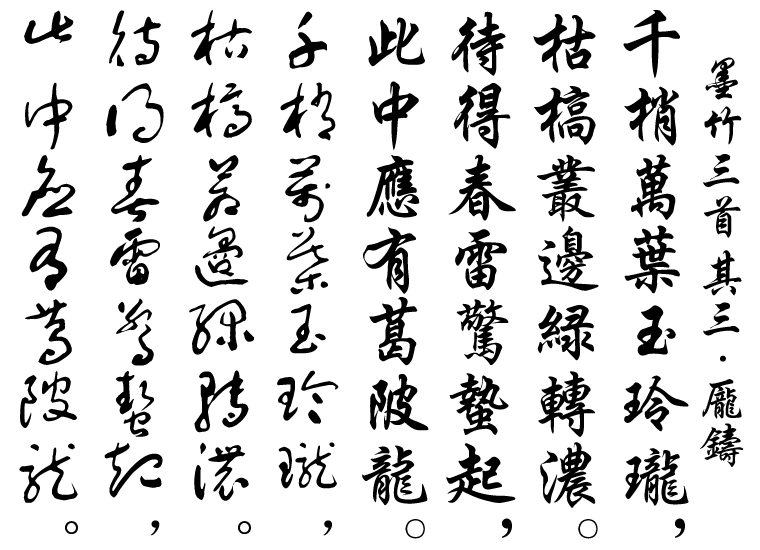 墨竹三首其三·龐鑄
千梢萬葉玉玲瓏，
枯槁叢邊緑轉濃。
待得春雷驚蟄起，
此中應有葛陂龍。
千梢萬葉玉玲瓏，
枯槁叢邊緑轉濃。
待得春雷驚蟄起，
此中應有葛陂龍。